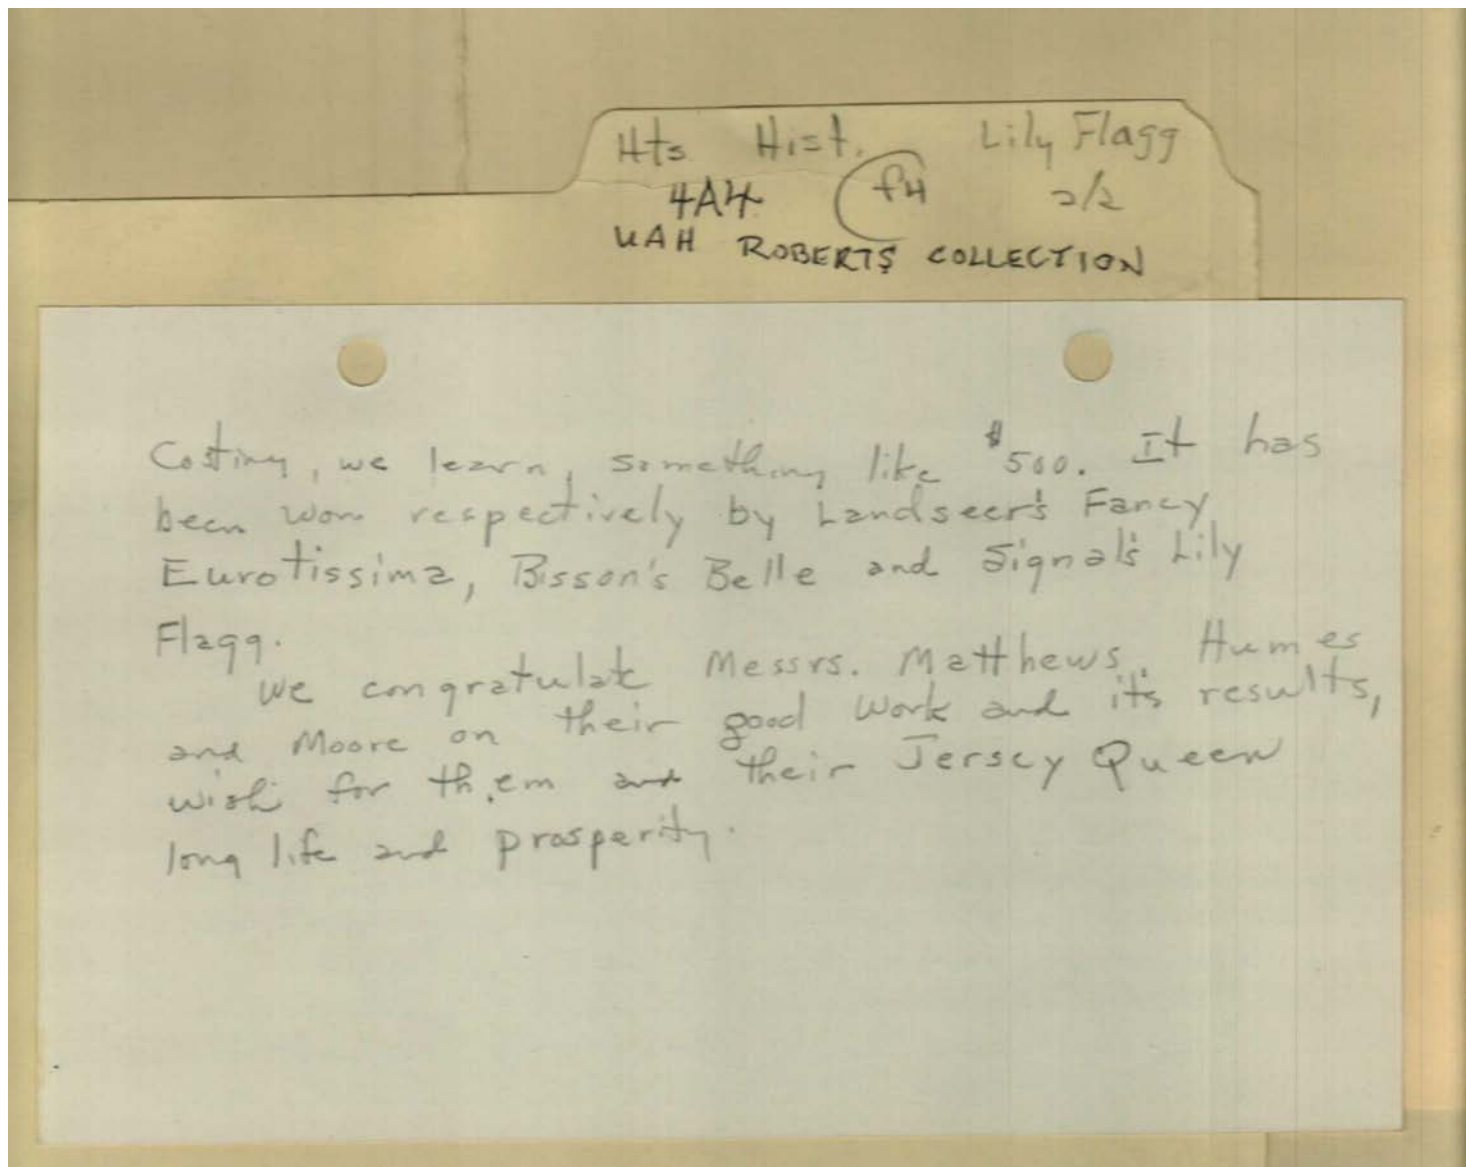 Hts Hist. Lily Flagg
4A4 f4 2/2
UAH ROBERTS COLLECTION
Costing, we learn, something like $500. It has
been won respectively by Landseer's Fancy
Eurotissima, Bisson's Belle and Signal's Lily
Flagg.
We congratulate Messrs. Matthews, Humes
and Moore on their good work and it's results,
wish for them and their Jersey Queen
long life and prosperity.